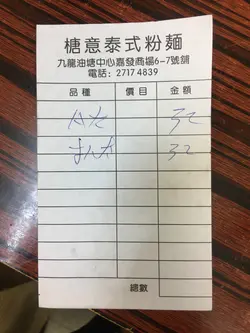 榶意泰式粉麵
九龍油塘中心嘉發商場6-7號舖
電話: 2717 4839
品種 價目 金額
32
32
總數